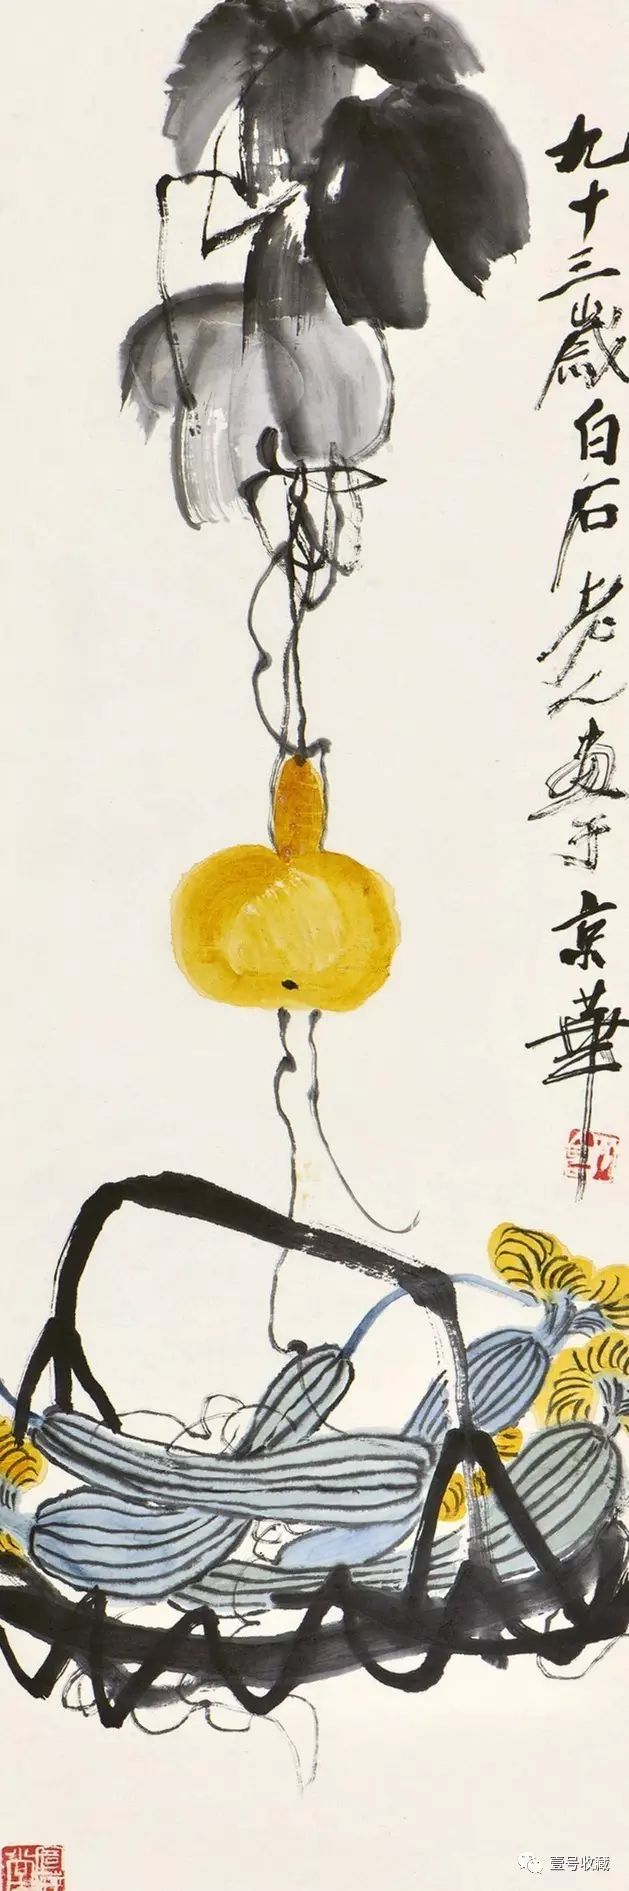 九十三歲白石老人画于京華
壹号收藏